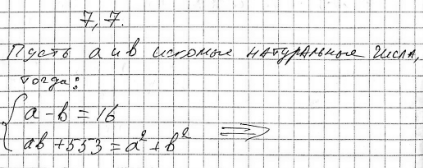 7,7.
Пусть a и в искомые натуральные числа,
тогда:
{ a - в = 16
ав + 553 = a² + в² ⟹